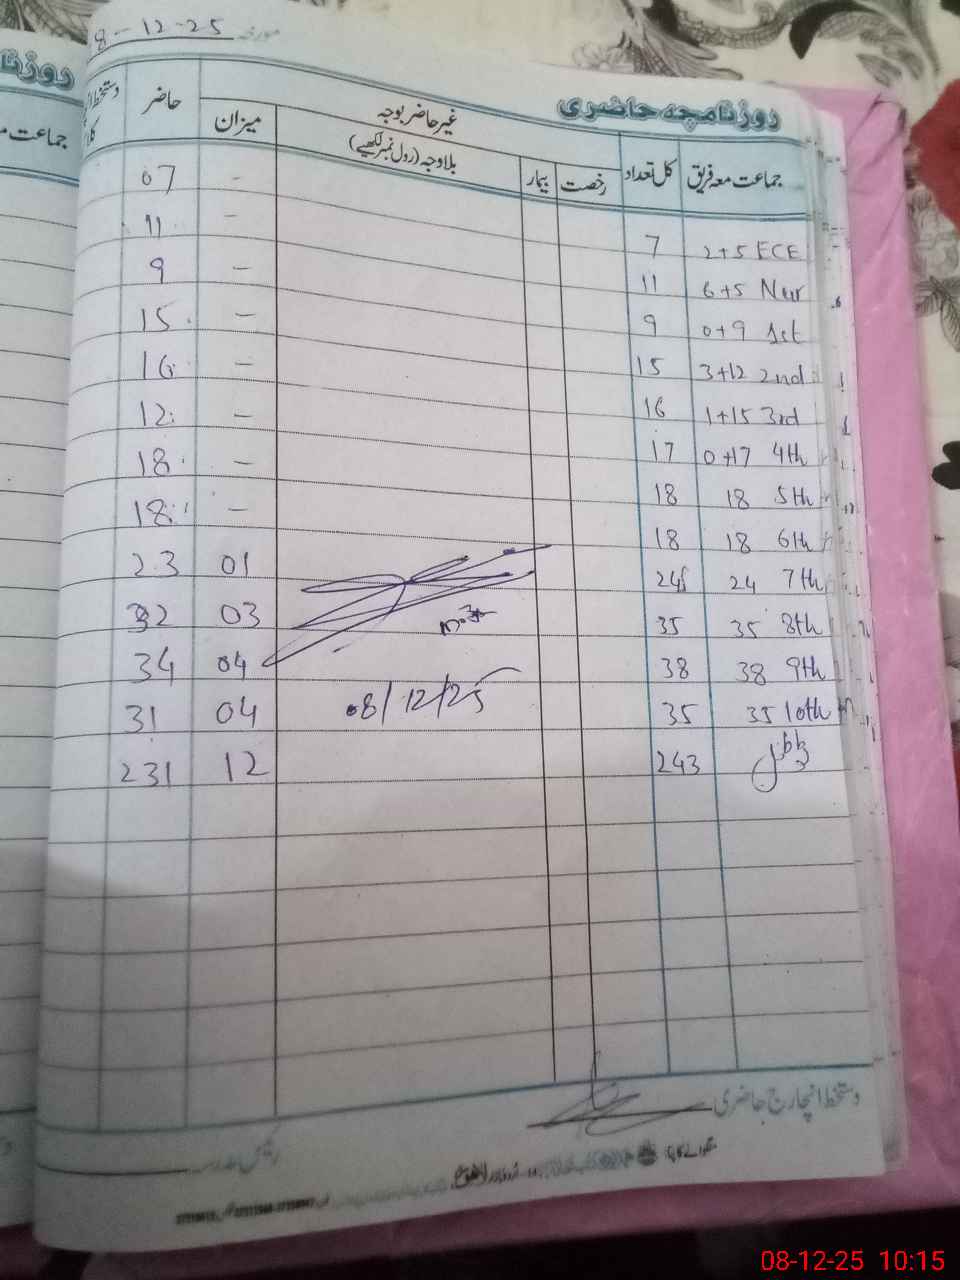 8-12-25 مورخہ
روزنامچہ حاضری
جماعت معہ فریق کل تعداد غیر حاضر بوجہ حاضر
رخصت بیمار بلاوجہ (رول نمبر لکھیے) میزان
2+5 ECE 7 - 07
6+5 Nur 11 - 11
0+9 1st 9 - 9
3+12 2nd 15 - 15
1+15 3rd 16 - 16
0+17 4th 17 - 12
18 5th 18 - 18
18 6th 18 - 18
24 7th 24 01 23
35 8th 35 03 32
38 9th 38 04 34
35 10th 35 04 31
08/12/25
ٹوٹل 243 12 231
دستخط انچارج حاضری
روزنا
جماعت م
08-12-25 10:15